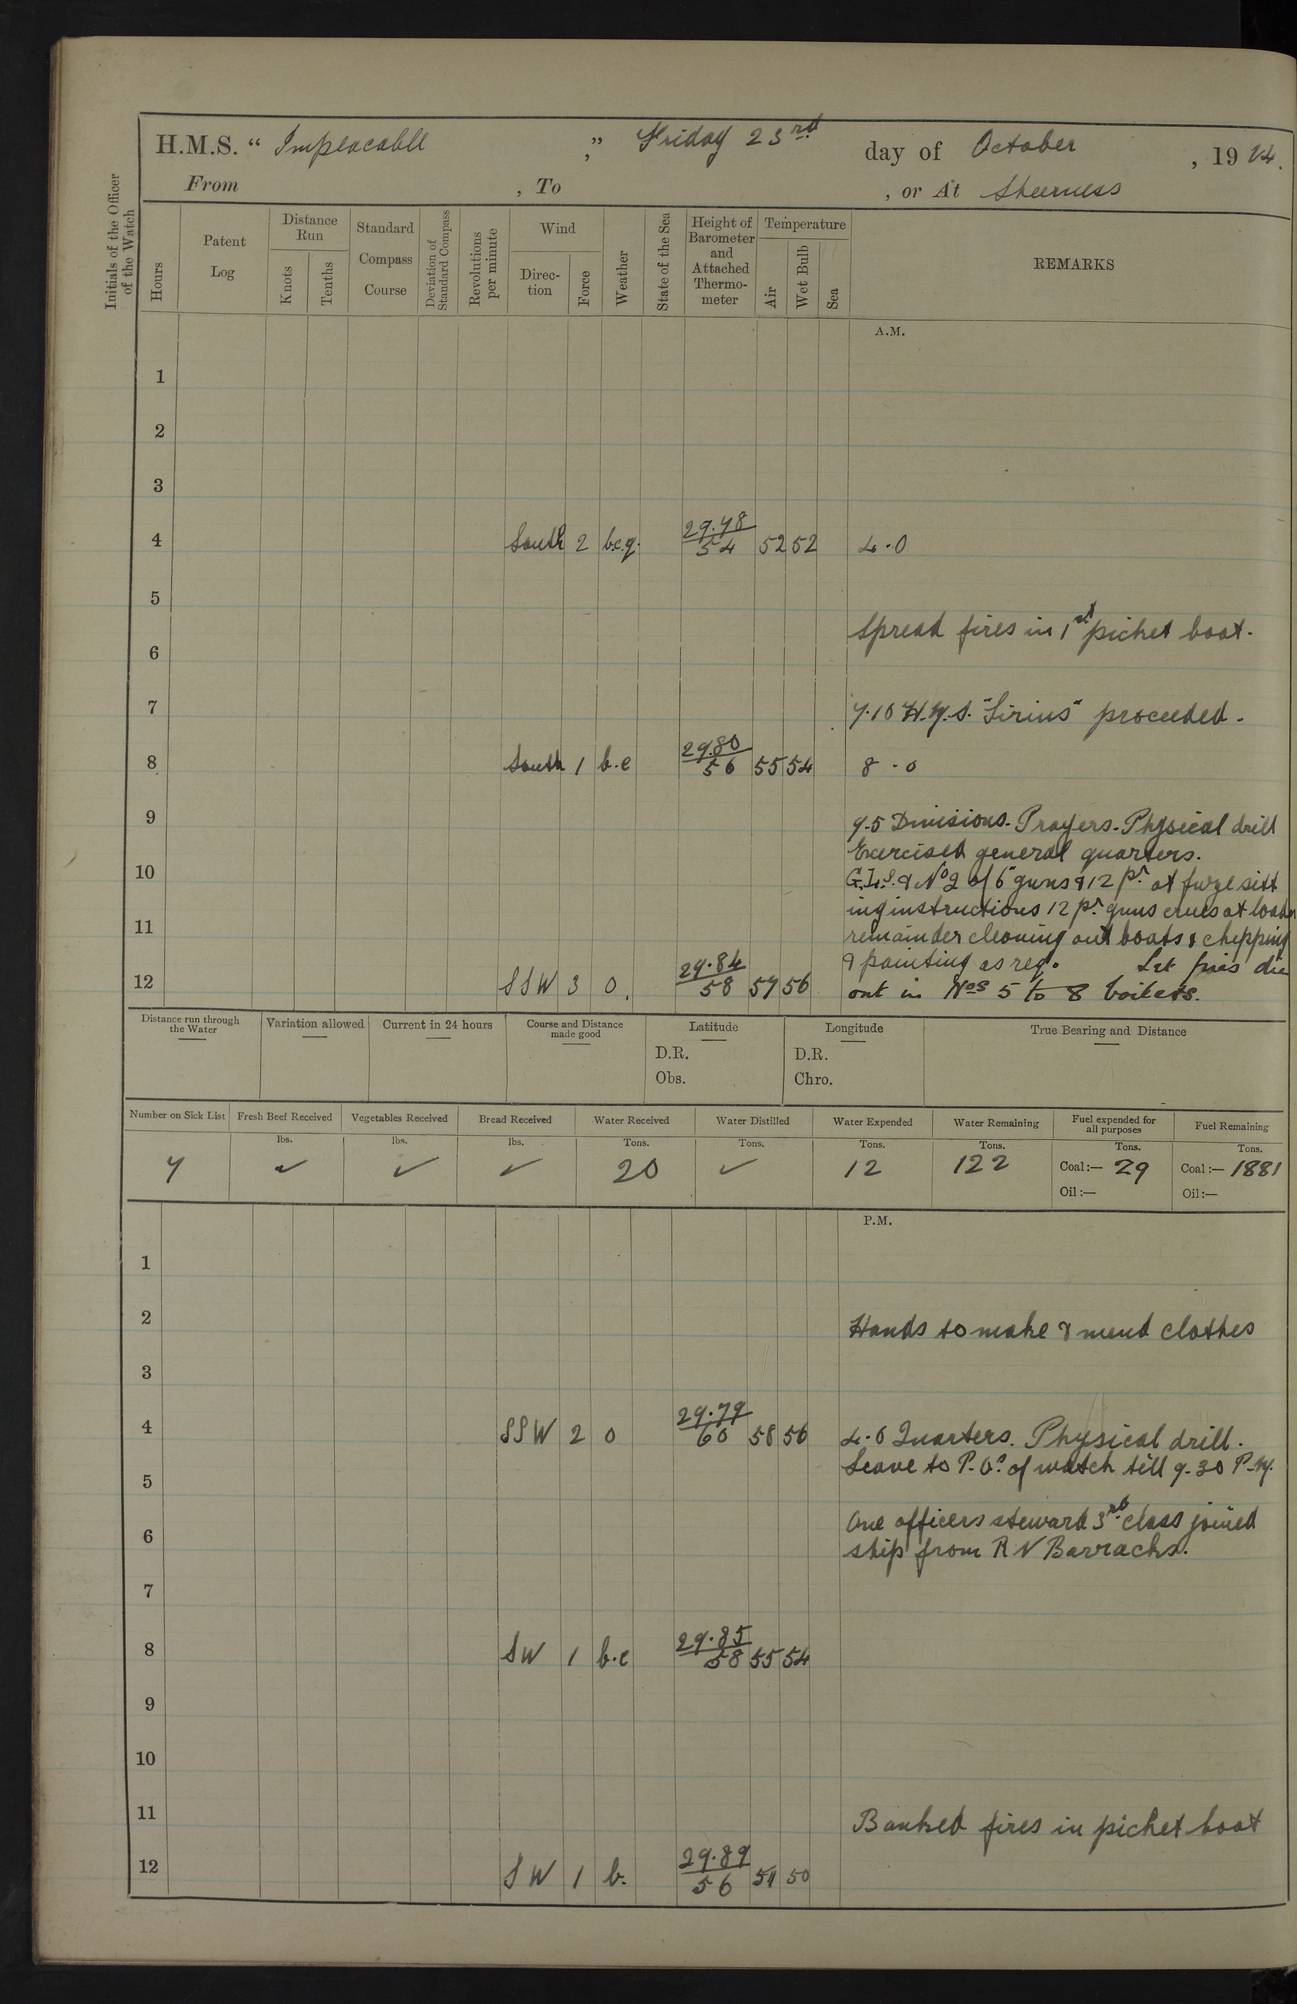 H.M.S. " Implacable ," Friday 23rd day of October , 1914.
From , To , or At Sheerness
Initials of the Officer of the Watch
Hours
Patent Log
Distance Run
Knots
Tenths
Standard Compass Course
Deviation of Standard Compass
Revolutions per minute
Wind
Direction
Force
Weather
State of the Sea
Height of Barometer and Attached Thermometer
Temperature
Air
Wet Bulb
Sea
REMARKS
A.M.
1
2
3
4 South 2 b.c.q. 29.78 54 52 52 4.0
5
Spread fires in 1st picket boat.
6
7 7.10 H.M.S. "Sirius" proceeded.
8 South 1 b.c 29.80 56 55 54 8.0
9 9.5 Divisions. Prayers. Physical drill
Exercised general quarters.
10 G.L.s. & No 2 of 6" guns & 12 pr. at fuze sett
ing instructions 12 pr. guns crews at loader
11 remainder cleaning out boats & chipping
& painting as req. Let fires die
12 SSW 3 o. 29.84 58 57 56 out in Nos 5 to 8 boilers.
Distance run through the Water
Variation allowed
Current in 24 hours
Course and Distance made good
Latitude
D.R.
Obs.
Longitude
D.R.
Chro.
True Bearing and Distance
Number on Sick List Fresh Beef Received Vegetables Received Bread Received Water Received Water Distilled Water Expended Water Remaining Fuel expended for all purposes Fuel Remaining
lbs. lbs. lbs. Tons. Tons. Tons. Tons. Tons. Tons.
7 ✓ ✓ ✓ 20 ✓ 12 122 Coal:— 29 Coal:— 1881
Oil:— Oil:—
P.M.
1
2 Hands to make & mend clothes
3
4 SSW 2 o 29.79 60 58 56 4.0 Quarters. Physical drill.
Leave to P.Os. of watch till 9.30 P.M.
5
One officers steward 3rd class joined
6 ship from R N Barracks.
7
8 SW 1 b.c 29.85 58 55 54
9
10
11 Banked fires in picket boat
12 SW 1 b. 29.89 56 51 50